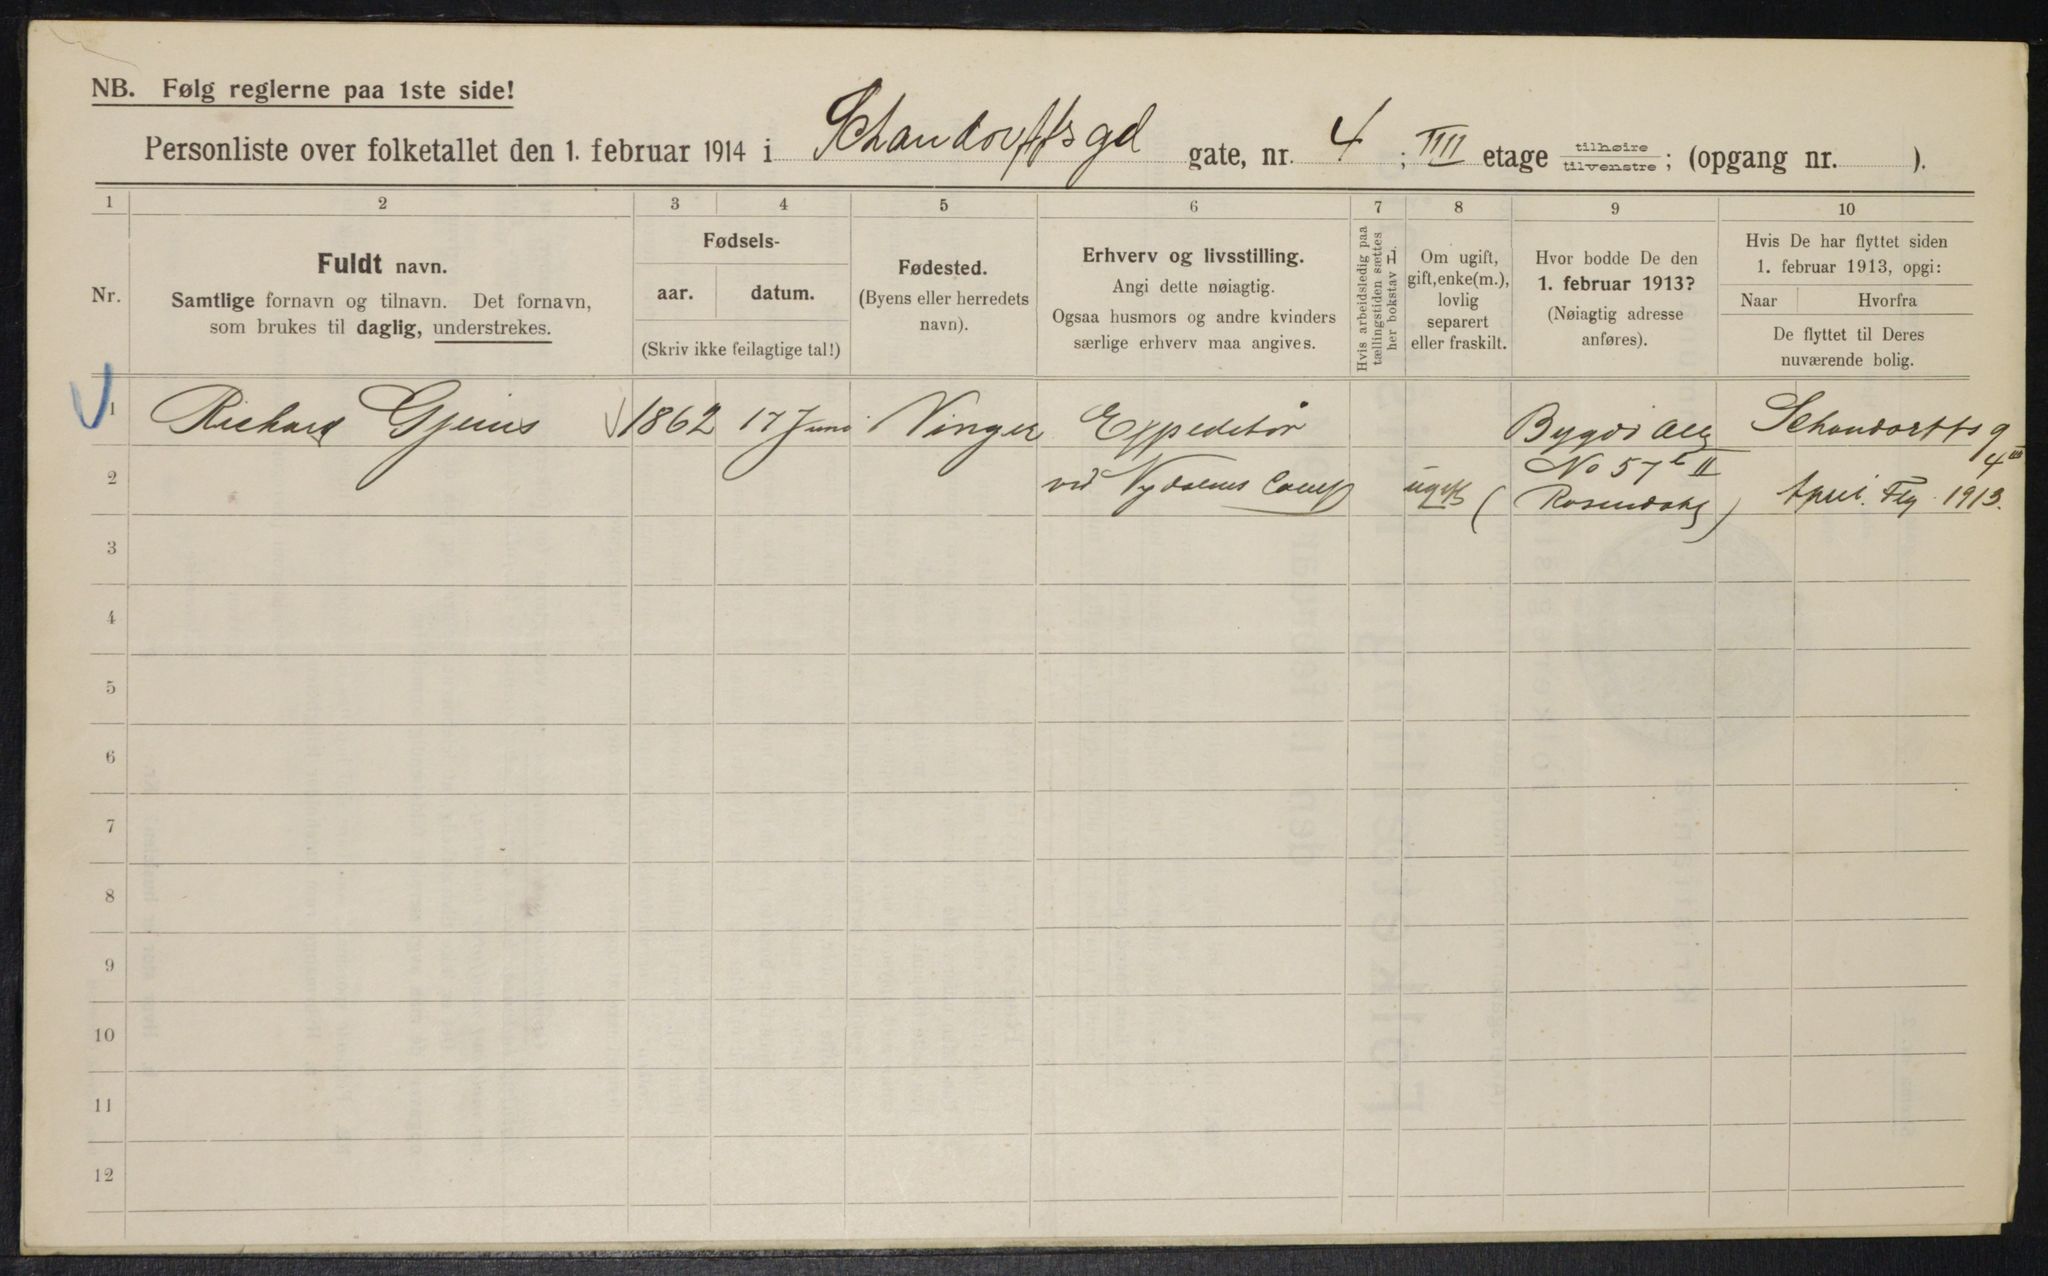 NB. Følg reglerne paa 1ste side!
Personliste over folketallet den 1. februar 1914 i Schandorffsgd gate, nr. 4 ; IIII etage tilhøire tilvenstre ; (opgang nr. ).
1 2 3 4 5 6 7 8 9 10
Nr.
Fuldt navn.
Samtlige fornavn og tilnavn. Det fornavn,
som brukes til daglig, understrekes.
Fødsels-
aar. datum.
(Skriv ikke feilagtige tal!)
Fødested.
(Byens eller herredets
navn).
Erhverv og livsstilling.
Angi dette nøiagtig.
Ogsaa husmors og andre kvinders
særlige erhverv maa angives.
Hvis arbeidsledig paa
tællingstiden sættes
her bokstav L.
Om ugift,
gift, enke(m.),
lovlig
separert
eller fraskilt.
Hvor bodde De den
1. februar 1913?
(Nøiagtig adresse
anføres).
Hvis De har flyttet siden
1. februar 1913, opgi:
Naar Hvorfra
De flyttet til Deres
nuværende bolig.
1 Richard Gjems 1862 17 Juni Vinger Expeditør Bygdø Alle Schandorffs g
4 III
2 ved Nydalens Comp ugift No 57 b II
(Rosendahl) April. Fly 1913.
3
4
5
6
7
8
9
10
11
12